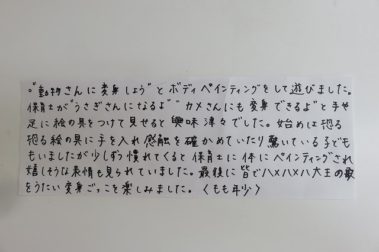 "動物さんに変身しよう"とボディペインティングをして遊びました。
保育士が"うさぎさんになるよ""カメさんにも変身できるよ"と手や
足に絵の具をつけて見せると興味津々でした。始めは恐る
恐る絵の具に手を入れ感触を確かめていたり驚いている子ども
もいましたが少しずつ慣れてくると保育士に体にペインティングされ
嬉しそうな表情も見られていました。最後に皆でハメハメハ大王の歌
をうたい変身ごっこを楽しみました。〈もも年少〉